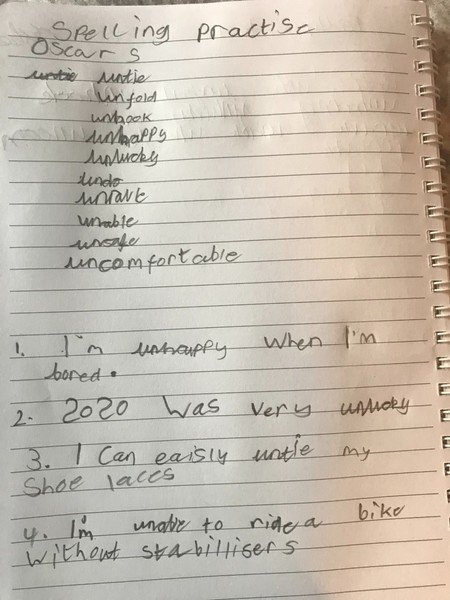 Spelling Practise
Oscars
untie untie
unfold
unhook
unhappy
unlucky
undo
unable
unsafe
uncomfortable
1. I'm unhappy when I'm
bored.
2. 2020 was very unlucky
3. I can eaisly untie my
Shoe laces
4. I'm unable to ride a bike
Without stabillisers